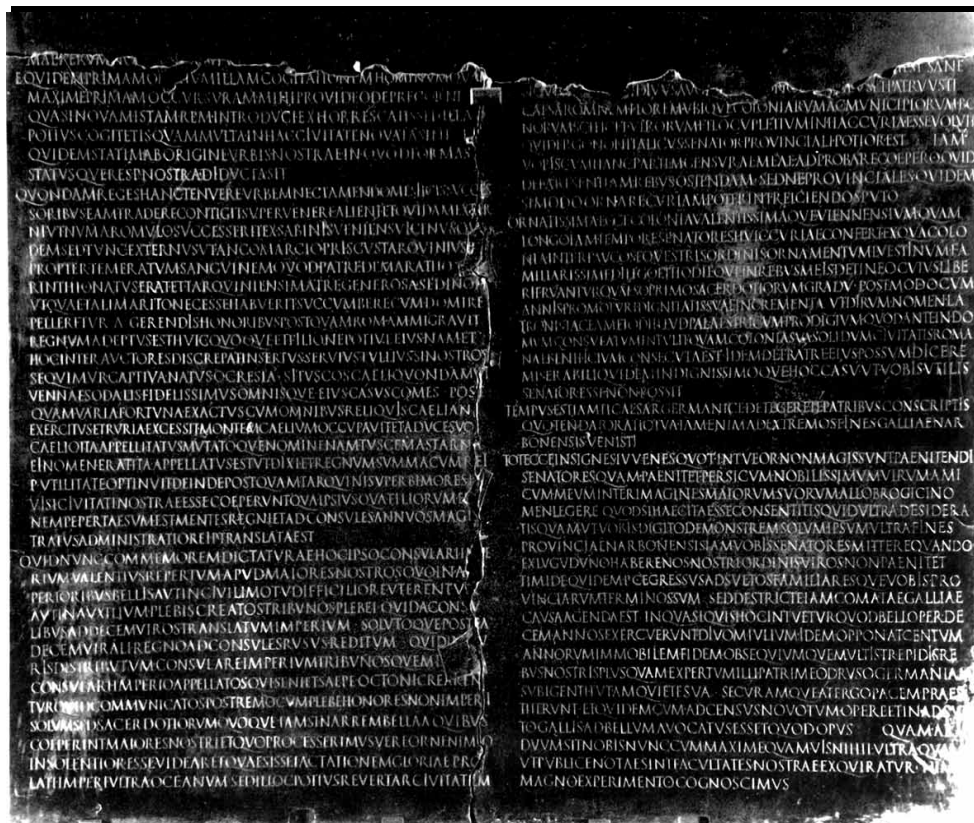 MAERERVM
EQVIDEMPRIMAMOMNIVMILLAMCOGITATIONEMHOMINVMQVAM
MAXIMEPRIMAMOCCVRSVRAMMIHIPROVIDEODEPRECORNE
QVASINOVAMISTAMREMINTRODVCIEXHORRESCATISSEDILLA
POTIVSCOGITETISQVAMMVLTAINHACCIVITATENOVATASINTET
QVIDEMSTATIMABORIGINEVRBISNOSTRAEINQVODFORMAS
STATVSQVERESPNOSTRADIDVCTASIT
QVONDAMREGESHANCTENVEREVRBEMNECTAMENDOMESTICISSVCCES
SORIBVSEAMTRADERECONTIGITSVPERVENEREALIENIETQVIDAMEXTER
NIVTNVMAROMVLOSVCCESSERITEXSABINISVENIENSVICINVSQVI
DEMSEDTVNCEXTERNVSVTANCOMARCIOPRISCVSTARQVINIVS
PROPTERTEMERATVMSANGVINEMQVODPATREDEMARATHOCO
RINTHIONATVSERATETTARQVINIENSIMATREGENEROSASEDINOPI
VTQVAETALIMARITONECESSEHABVERITSVCCVMBERECVMDOMIRE
PELLERETVRAGERENDISHONORIBVSPOSTQVAMROMAMMIGRAVIT
REGNVMADEPTVSESTHVICQVOQVEETFILIONEPOTIVEEIVSNAMET
HOCINTERAVCTORESDISCREPATINSERTVSSERVIVSTVLLIVSSINOSTROS
SEQVIMVRCAPTIVANATVSOCRESIASITVSCOSCAELIQVONDAMVI
VENNAESODALISFIDELISSIMVSOMNISQVEEIVSCASVSCOMESPOST
QVAMVARIAFORTVNAEXACTVSCVMOMNIBVSRELIQVISCAELIANI
EXERCITVSETRVRIAEXCESSITMONTEMCAELIVMOCCVPAVITETADVCESVO
CAELIOITAAPPELLITATVSMVTATOQVENOMINENAMTVSCEMASTARNA
EINOMENERATITAAPPELLATVSESTVTDIXIETREGNVMSVMMACVMREI
PVTILITATEOPTINVITDEINDEPOSTQVAMTARQVINISVPERBIMORESIN
VISICIVITATINOSTRAEESSECOEPERVNTQVAIPSIVSQVAFILIORVMEI
NEMPEPERTAESVMESTMENTESREGNIETADCONSVLESANNVOSMAGIS
TRATVSADMINISTRATIOREIPTRANSLATAEST
QVIDNVNCCOMMEMOREMDICTATVRAEHOCIPSOCONSVLARIIMPE
RIVMVALENTIVSREPERTVMAPVDMAIORESNOSTROSQVOINAS
PERIORIBVSBELLISAVTINCIVILIMOTVDIFFICILIOREVTERENTVR
AVTINAVXILIVMPLEBISCREATOSTRIBVNOSPLEBEIQVIDACONSV
LIBVSADDECEMVIROSTRANSLATVMIMPERIVMSOLVTOQVEPOSTEA
DECEMVIRALIREGNOADCONSVLESRVSVSREDITVMQVIDIN
RISDISTRIBVTVMCONSVLAREIMPERIVMTRIBVNOSQVEMI
CONSVLARIIMPERIOAPPELLATOSQVISENIETSAEPEOCTONICREAREN
TVRQVIDCOMMVNICATOSPOSTREMOCVMPLEBEHONORESNONIMPERI
SOLVMSEDSACERDOTIORVMQVOQVEIAMSINARREMBELLAAQVIBVS
COEPERINTMAIORESNOSTRIETQVOPROCESSERIMVSVEREORNENIMIO
INSOLENTIORESSEVIDEARETQVAESISSEIACTATIONEMGLORIAEPRO
LATIIMPERIVLTRAOCEANVMSEDILLOCPOTIVSREVERTARCIVITATEM
SANE
DIVVSAVG PATRVVSTI
CAESAROMNEMFLOREMVBIQVECOLONIARVMACMVNICIPIORVMBO
NORVMSCILICETVIRORVMETLOCVPLETIVMINHACCVRIAESSEVOLVIT
QVIDERGONONITALICVSSENATORPROVINCIALIPOTIOREST IAM
VOBISCVMHANCPARTEMCENSVRAEMEAEADPROBARECOEPEROQVID
DEEARESENTIAMREBVSOSTENDAMSEDNEPROVINCIALESQVIDEM
SIMODOORNARECVRIAMPOTERINTREICIENDOSPVTO
ORNATISSIMAECCECOLONIAVALENTISSIMAQVEVIENNENSIVMQVAM
LONGOIAMTEMPORESENATORESHVICCVRIAECONFERTEXQVACOLO
NIAINTERPAVCOSEQVESTRISORDINISORNAMENTVMLVESTINVMFA
MILIARISSIMEDILIGOETHODIEQVEINREBVSMEISDETINEOCVIVSLIBE
RIFRVANTVRQVAESOPRIMOSACERDOTIORVMGRADVPOSTMODOCVM
ANNISPROMOTVRIDIGNITATISSVAEINCREMENTAVTDIRVMNOMENLA
TRONISTACEAMETODIILLVDPALAESTRICVMPRODIGIVMQVODANTEINDO
MVMCONSVLATVMINTVLITQVAMCOLONIASVASOLIDVMCIVITATISROMA
NAEBENIFICIVMCONSECVTAESTIDEMDEFRATREEIVSPOSSVMDICERE
MISERABILIQVIDEMINDIGNISSIMOQVEHOCCASVVTVOBISVTILIS
SENATORESSENONPOSSIT
TEMPVSESTIAMTICAESARGERMANICEDETEGERETEPATRIBVSCONSCRIPTIS
QVOTENDATORATIOTVAIAMENIMADEXTREMOSFINESGALLIAENAR
BONENSISVENISTI
TOTECCEINSIGNESIVVENESQVOTINTVEORNONMAGISSVNTPAENITENDI
SENATORESQVAMPAENITETPERSICVMNOBILISSIMVMVIRVMAMI
CVMMEVMINTERIMAGINESMAIORVMSVORVMALLOBROGICINO
MENLEGEREQVODSIHAECITAESSECONSENTITISQVIDVLTRADESIDERA
TISQVAMVTVOBISDIGITODEMONSTREMSOLVMIPSVMVLTRAFINES
PROVINCIAENARBONENSISIAMVOBISSENATORESMITTEREQVANDO
EXLVGVDVNOHABERENOSNOSTRIORDINISVIROSNONPAENITET
TIMIDEQVIDEMPCEGRESSVSADSVETOSFAMILIARESQVEVOBISPRO
VINCIARVMTERMINOSSVMSEDDESTRICTEIAMCOMATAEGALLIAE
CAVSAAGENDAESTINQVASIQVISHOCINTVETVRQVODBELLOPERDE
CEMANNOSEXERCVERVNTDIVOMIVLIVMIDEMOPPONATCENTVM
ANNORVMIMMOBILEMFIDEMOBSEQVIVMQVEMVLTISTREPIDISRE
BVSNOSTRISPLVSQVAMEXPERTVMILLIPATRIMEODRVSOGERMANIAM
SVBIGENTITVTAMQVIETESVASECVRAMQVEATERGOPACEMPRAES
TITERVNTETQVIDEMCVMADCENSVSNOVOTVMOPEREETINADSVE
TOGALLISADBELLVMAVOCATVSESSETQVODOPVS QVAMAR
DVVMSITNOBISNVNCCVMMAXIMEQVAMVISNIHILVLTRAQVAM
VTPVBLICENOTAESINTFACVLTATESNOSTRAEEXQVIRATVRNIMIS
MAGNOEXPERIMENTOCOGNOSCIMVS